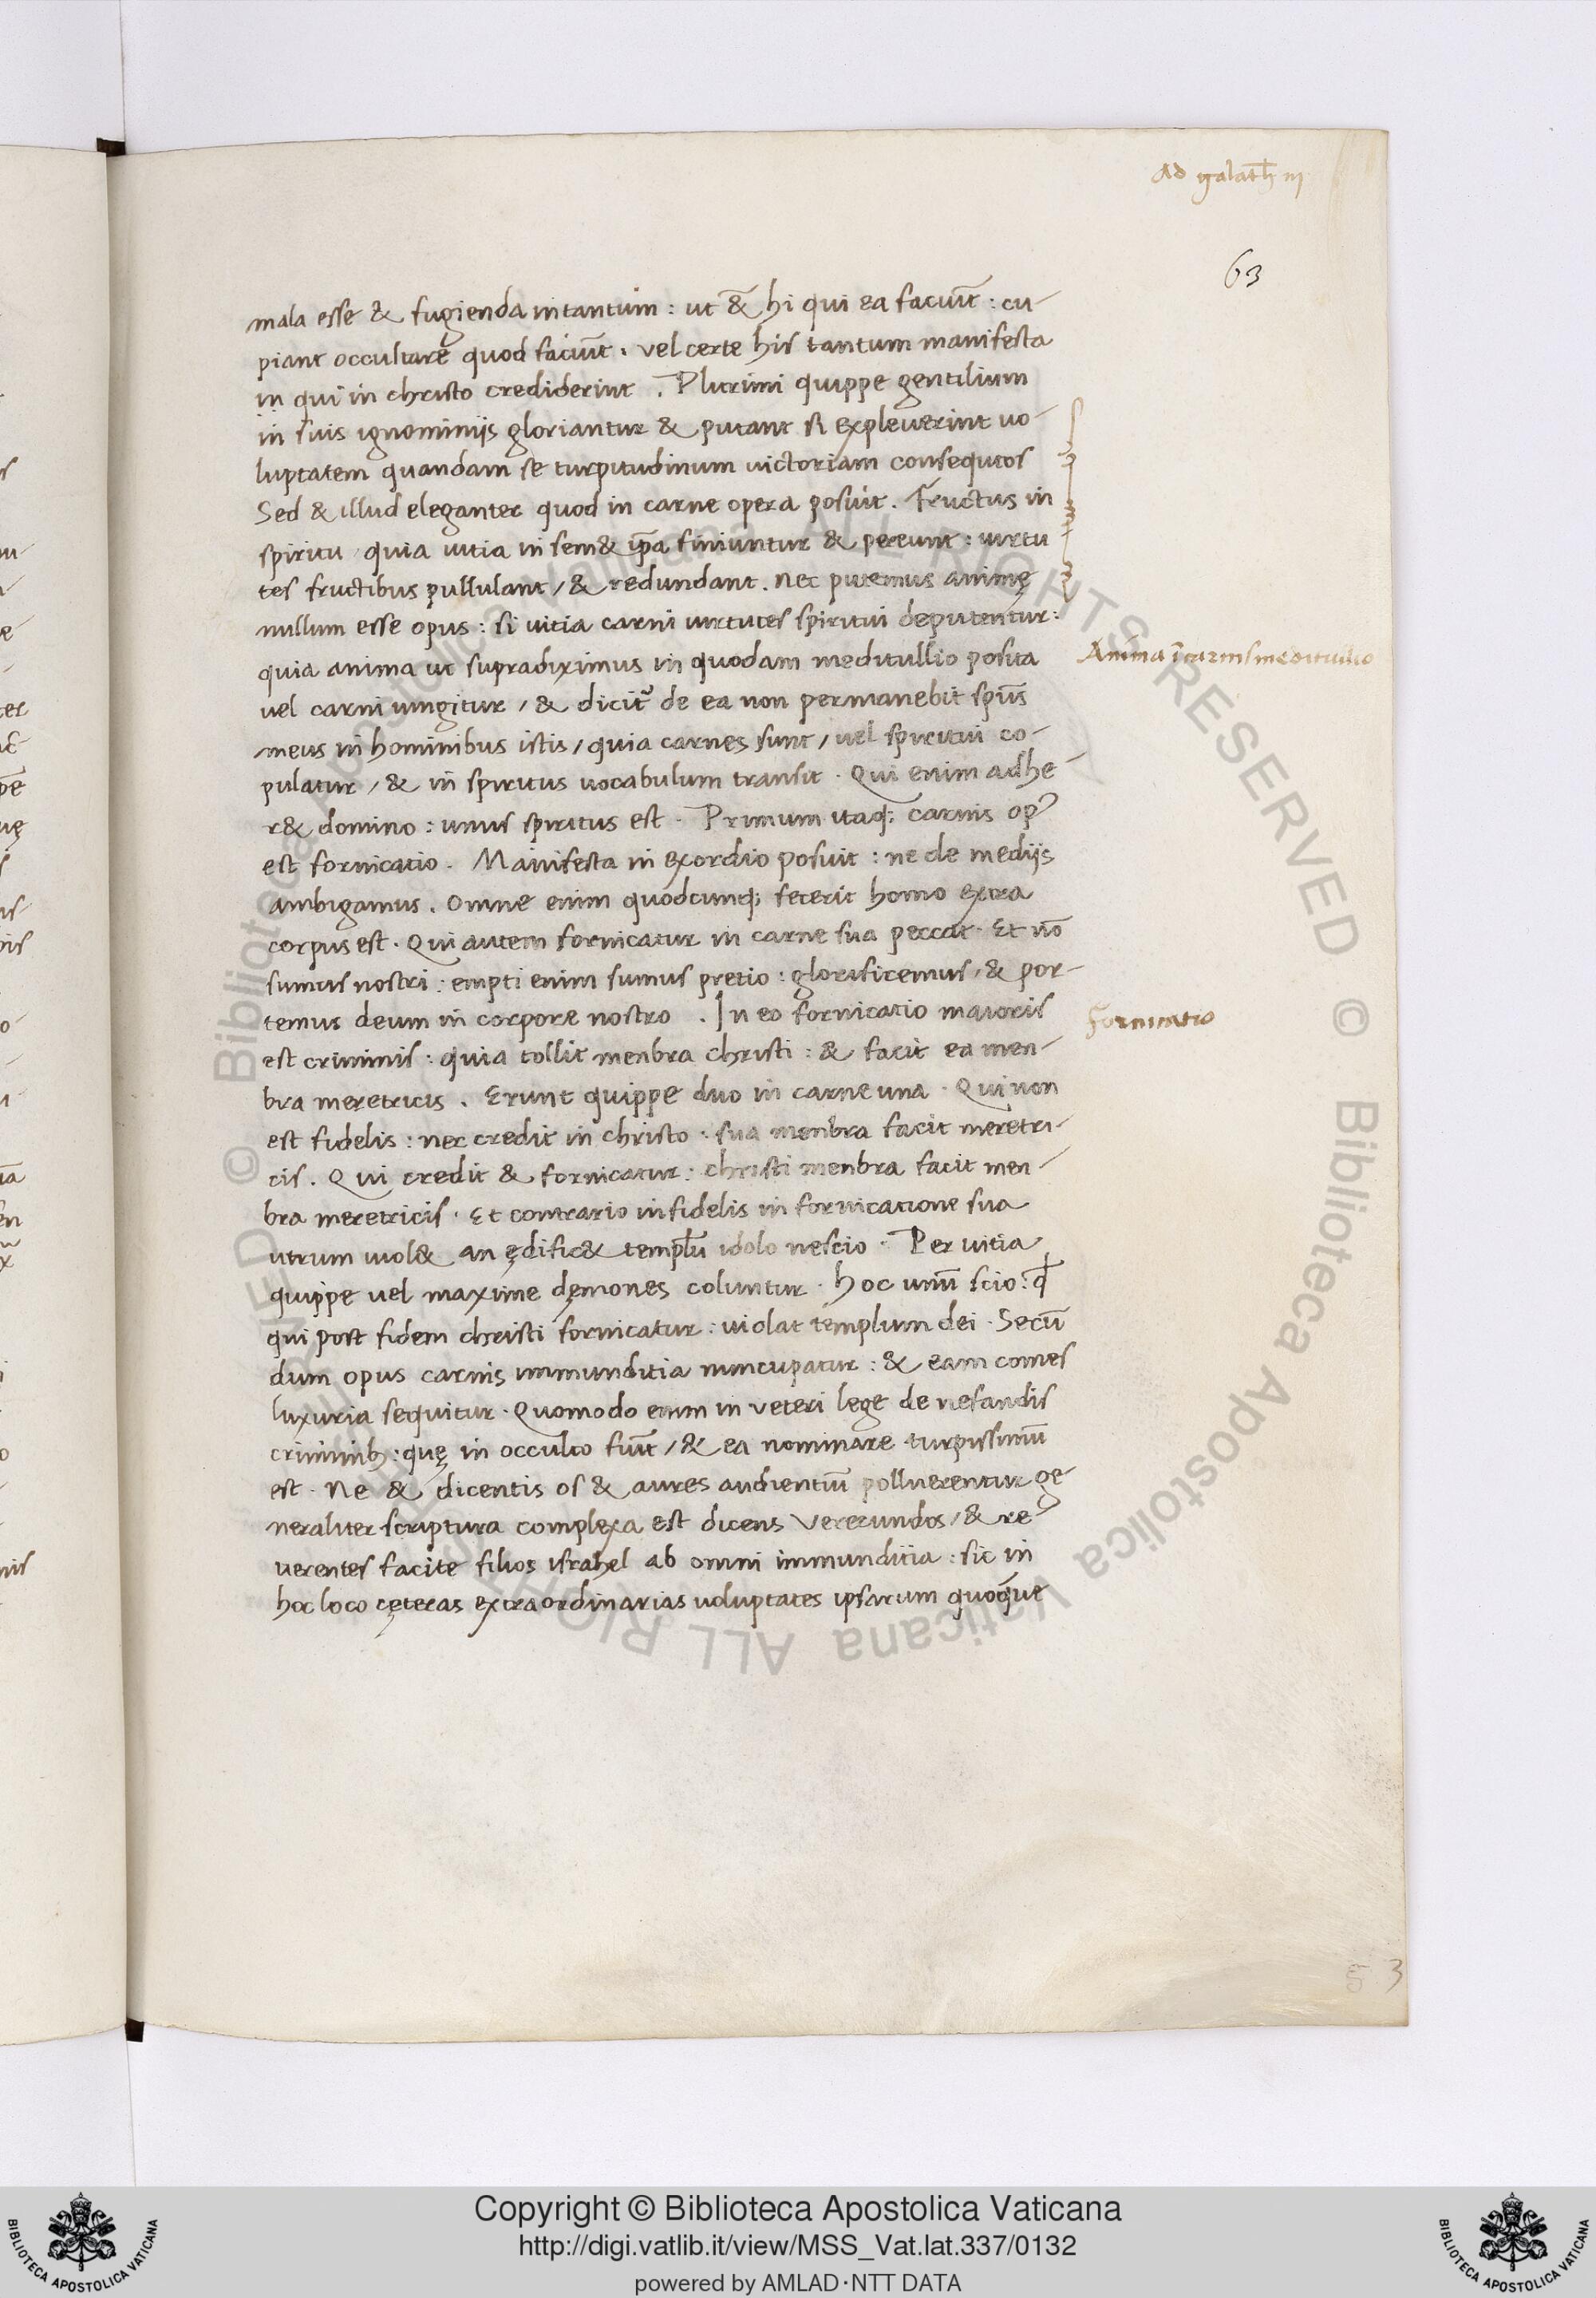 Ad galath̄ III
63
mala esse & fugienda in tantum : ut &̄ hi qui ea faciūt : cu-
piant occultare quod faciūt . vel certe his tantum manifesta
in qui in christo crediderint . Plurimi quippe gentilium
in suis ignominijs gloriantur & putant si expleverint uo-
luptatem quandam se turpitudinum uictoriam consequtos
Sed & illud eleganter quod in carne opera posuit . Fructus in
spiritu quia uitia in sem& ip̄a finiuntur & pereunt : uirtu
tes fructibus pullulant / & redundant . nec putemus animę
nullum esse opus : si uitia carni uirtutes spiritui deputentur :
quia anima ut supradiximus in quodam meditullio posita
Anima ī carnis meditullio
uel carni iungitur / & dicit᷑ de ea non permanebit sp̄us
meus in hominibus istis / quia carnes sunt / uel spiritui co-
pulatur / & in spiritus uocabulum transit . Qui enim adhe-
r& domino : unus spiritus est . Primum itaq; carnis opꝰ
est fornicatio . Manifesta in exordio posuit : ne de medijs
ambigamus . omne enim quodcunq; fecerit homo extra
corpus est . Qui autem fornicatur in carne sua peccat . Et nō
sumus nostri : empti enim sumus pretio : glorificemus / & por-
temus deum in corpore nostro . In eo fornicatio maioris
Fornicatio
est criminis : quia tollit menbra christi : & facit ea men-
bra meretricis . Erunt quippe duo in carne una . Qui non
est fidelis : nec credit in christo : sua menbra facit meretri-
cis . Qui credit & fornicatur : christi menbra facit men-
bra meretricis . Et contrario infidelis in fornicatione sua
utrum uiol& an ędific& templū idolo nescio . Per uitia
quippe uel maxime dęmones coluntur . hoc unū scio : ꝙ
qui post fidem christi fornicatur : uiolat templum dei . Secū
dum opus carnis immunditia nuncupatur : & eam comes
luxuria sequitur . Quomodo enim in veteri lege de nefandis
criminib; : quę in occulto fiūt / & ea nominare turpissimū
est . Ne & dicentis os & aures audientiū polluerentur ge-
neraliter scriptura complexa est dicens Verecundos / & re-
uerentes facite filios israhel ab omni immunditia : sic in
hoc loco cęteras extraordinarias uoluptates ipsarum quoq̄ue
3
© Biblioteca Apostolica Vaticana ALL RIGHTS RESERVED © Biblioteca Apostolica Vaticana ALL RIGHTS RESERVED
Copyright © Biblioteca Apostolica Vaticana
http://digi.vatlib.it/view/MSS_Vat.lat.337/0132
powered by AMLAD·NTT DATA
BIBLIOTECA APOSTOLICA VATICANA
BIBLIOTECA APOSTOLICA VATICANA